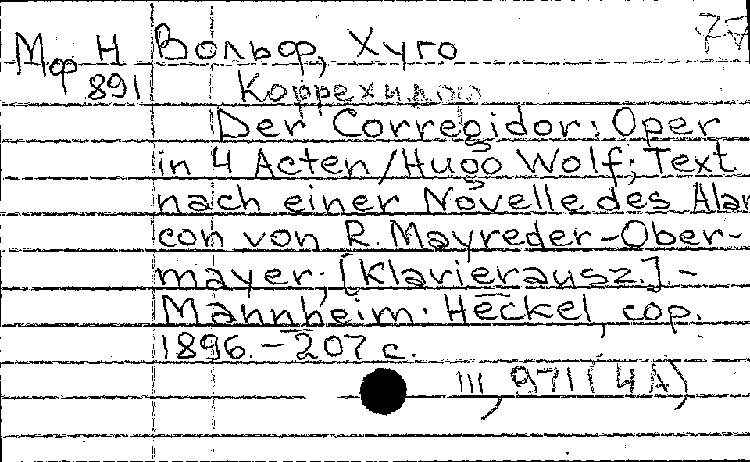 Мф Н Вольф, Хуго 77
891 Коррехидор
Der Corregidor: Oper
in 4 Acten/Hugo Wolf; Text
nach einer Novelle des Alar
con von R. Mayreder-Ober-
mayer; [Klavierausz.].-
Mannheim: Heckel, cop.
1896.-207 с.
III, 971 (4A)